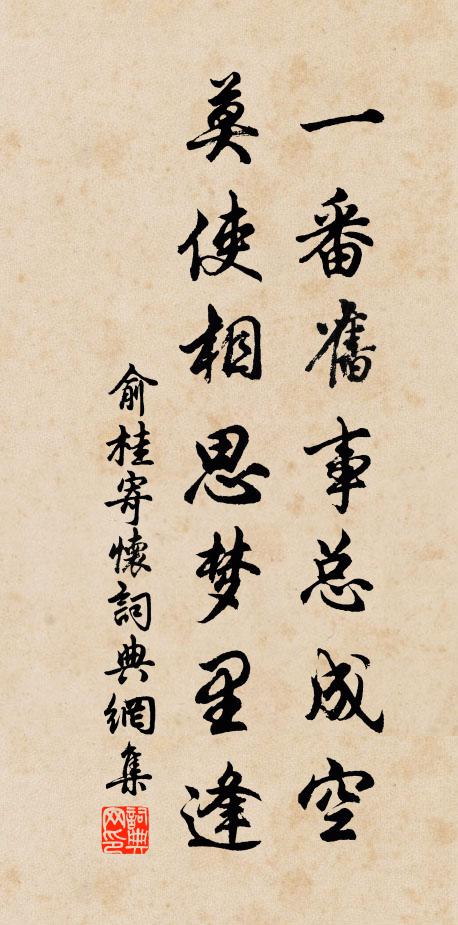 一番舊事总成空
莫使相思梦里逢
俞桂寄懷詞典網集
詞典网印